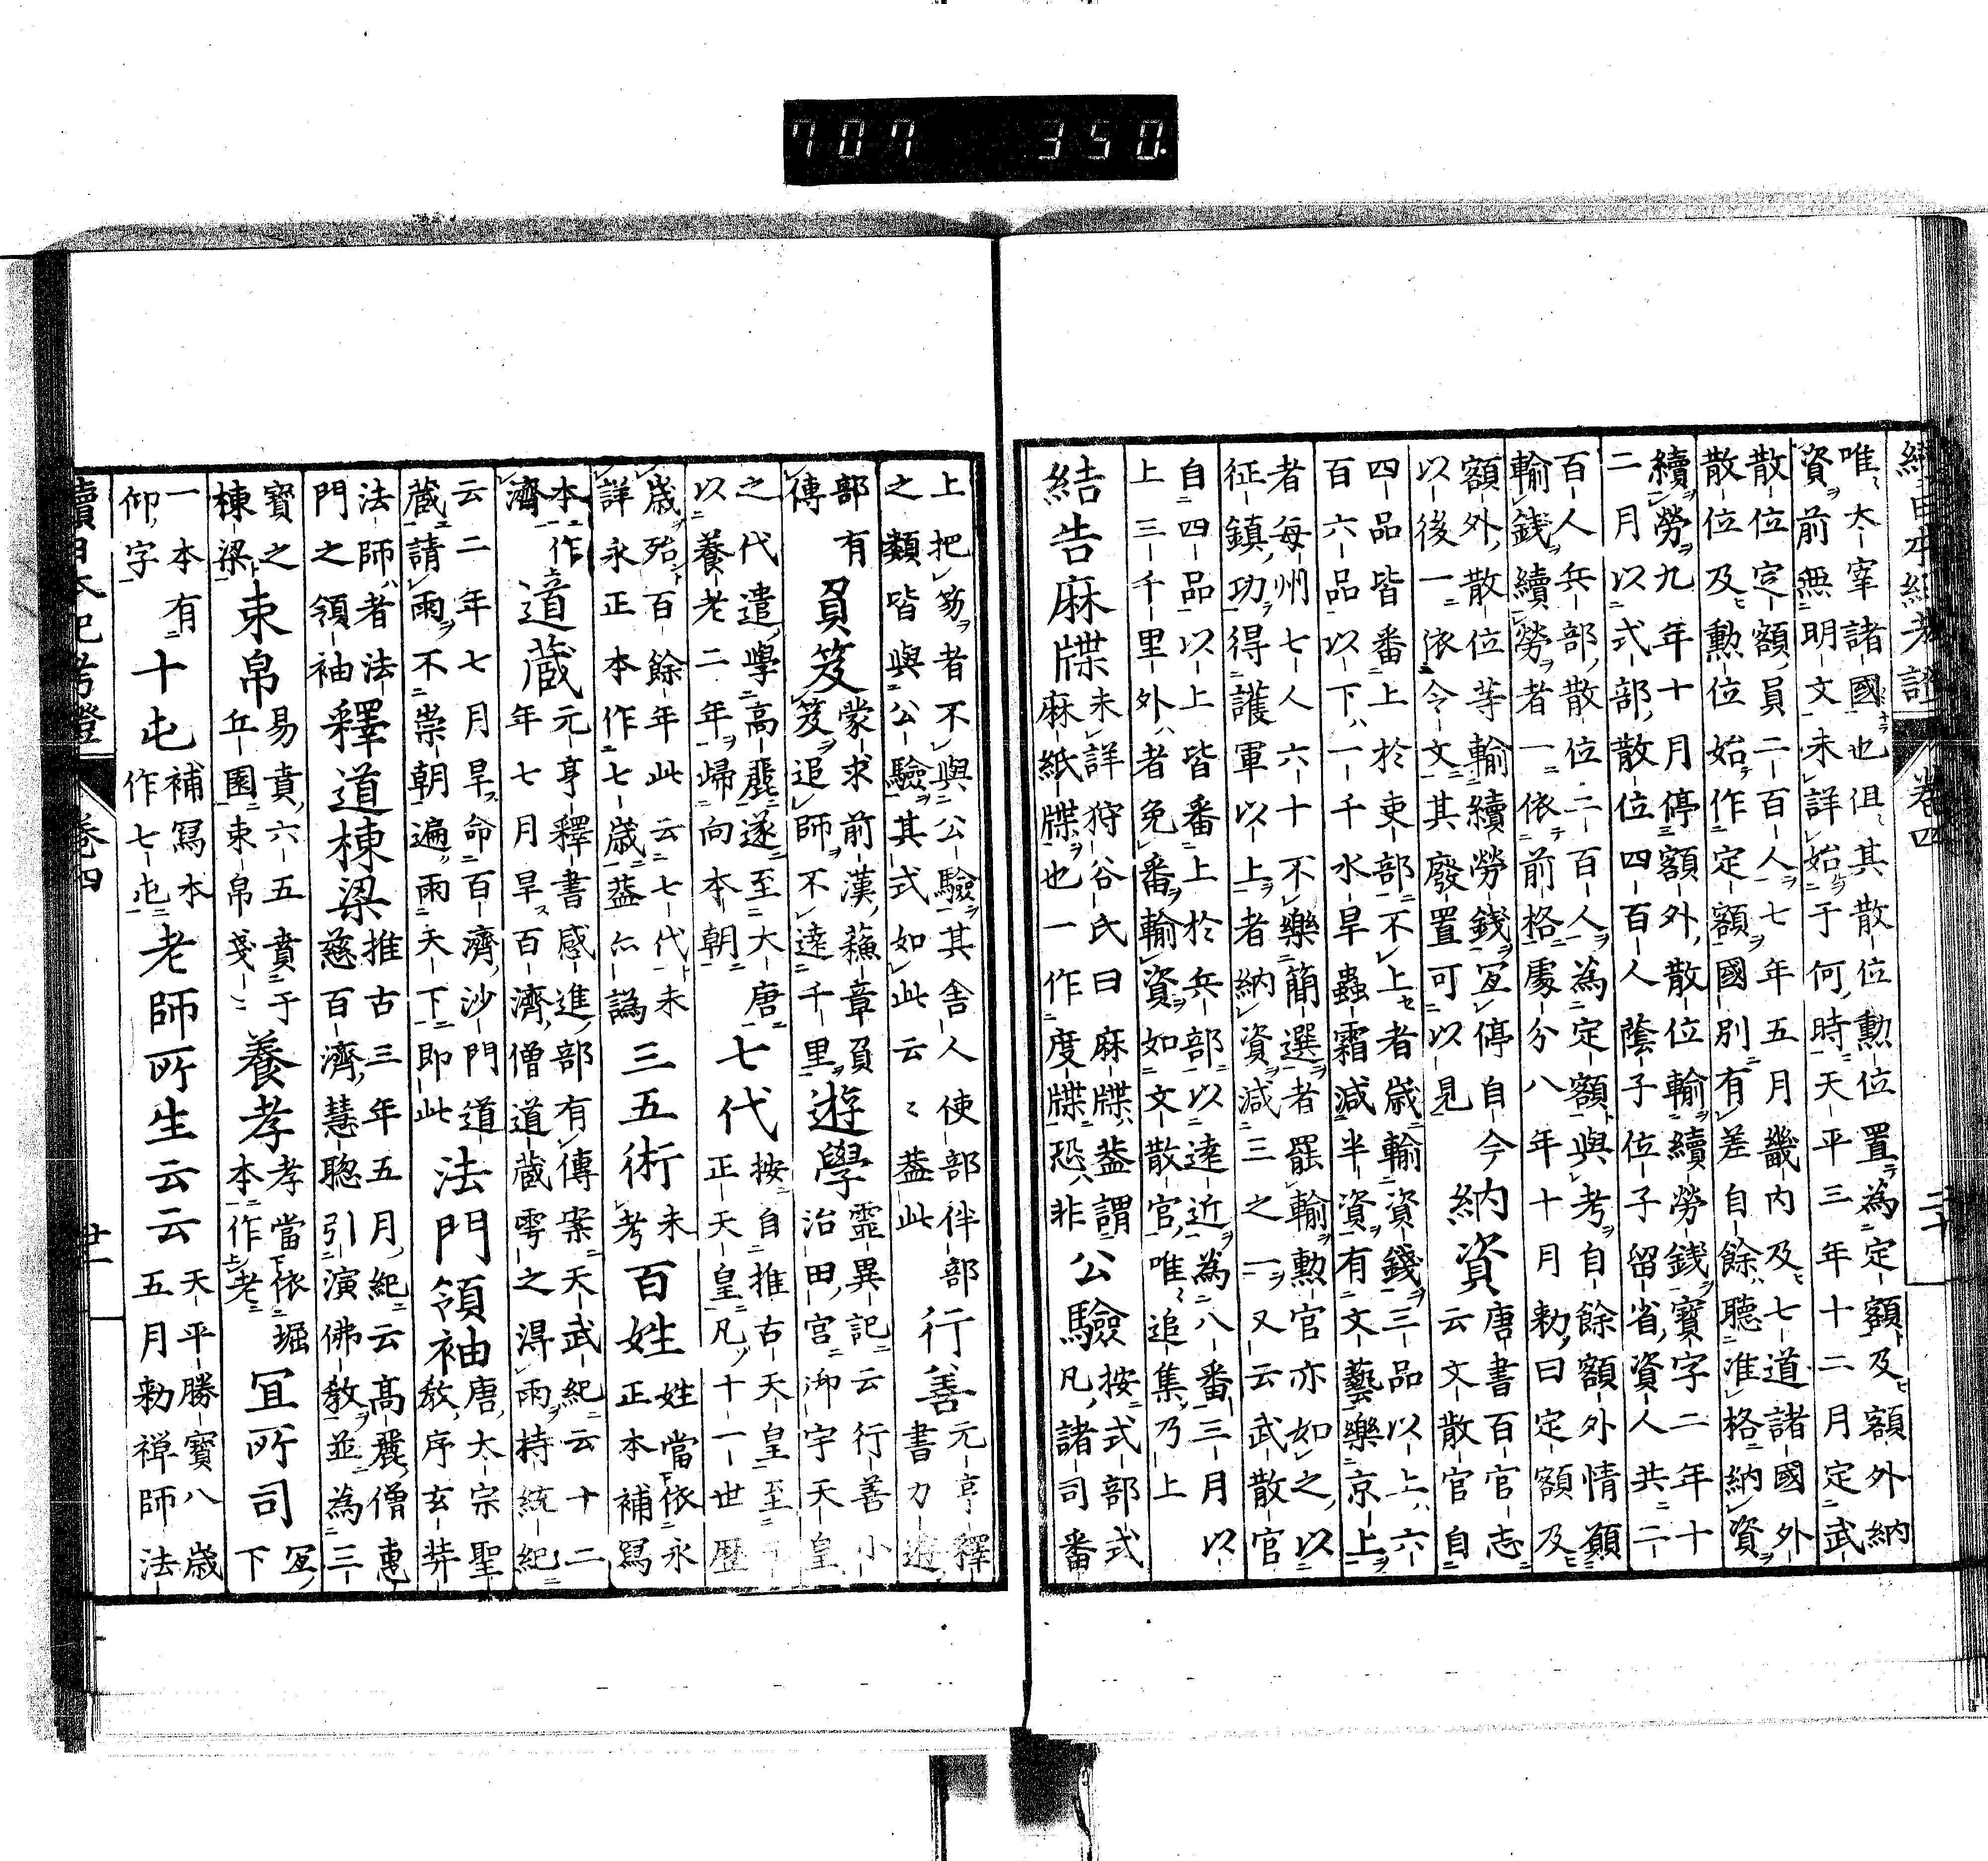 707 350.
續日本紀考證 卷四 二十
唯大宰諸國也但其散位勲位置為定額及額外納
資前無明文未詳始于何時天平三年十二月定武
散位定額員二百人七年五月畿内及七道諸國外
散位及勲位始作定額國別有差自餘聽准格納資
續勞九年十月停額外散位輸續勞錢寳字二年十
二月以式部散位四百人蔭子位子留省資人共二
百人兵部散位二百人為定額與考自餘額外情願
輸錢續勞者一依前格處分八年十月勅曰定額及
額外散位等輸續勞錢宜停自今
以後一依令文其廢置可以見
納資
唐書百官志
云文散官自
四品皆番上於吏部不上者歳輸資錢三品以上六
百六品以下一千水旱蟲霜減半資有文藝樂京上
者每州七人六十不樂簡選者罷輸勲官亦如之以
征鎮功得護軍以上者納資減三之一又云武散官
自四品以上皆番上於兵部以遠近為八番三月以
上三千里外者免番輸資如文散官唯追集乃上
結告麻牒
未詳狩谷氏曰麻牒蓋謂
麻紙牒也一作度牒恐非
公驗
按式部式
凡諸司番
上把笏者不與公驗其舎人使部伴部
之類皆與公驗其式如此云〻蓋此
行善
元亨釋
書力遊
部有
傳
負笈
蒙求前漢蘓章負
笈追師不遠千里
遊學
靈異記云行善小
治田宮御宇天皇
之代遣學高麗遂至大唐
以養老二年歸向本朝
七代
按自推古天皇至
正天皇凡十一世歴
歳殆百餘年此云七代未
詳永正本作七歳蓋亦譌
三五術
未
考
百姓
姓當依永
正本補寫
本作
濟
道蔵
元亨釋書感進部有傳案天武紀云十二
年七月旱百濟僧道蔵雩之得雨持統紀
云二年七月旱命百濟沙門道
蔵請雨不崇朝遍雨天下即此
法門領袖
唐太宗聖
教序玄弉
法師者法
門之領袖
釋道棟梁
推古三年五月紀云高麗僧惠
慈百濟慧聡引演佛教並為三
寳之
棟梁
束帛
易賁六五賁于
丘園束帛戔〻
養孝
孝當依堀
本作老
宜所司
宜
下
一本有
仰字
十屯
補寫本
作七屯
老師所生云云
天平勝寳八歳
五月勅禅師法
續日本紀考證 卷四 廿一